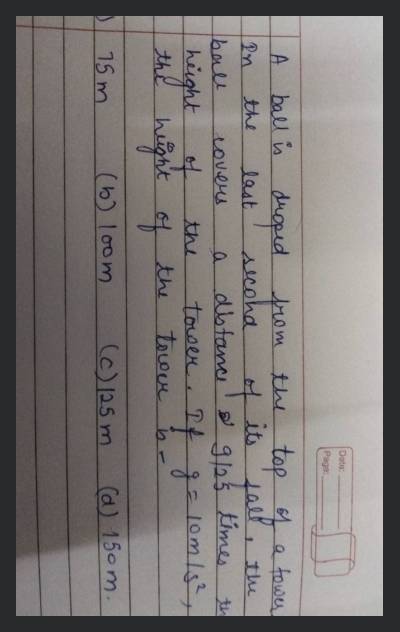 Date:
Page:
A ball is droped from the top of a tower
In the last second of its fall, the
ball covers a distance 9/25 times th
height of the tower. If g = 10m/s²,
the height of the tower is -
) 75m (b) 100m (c) 125m (d) 150m.